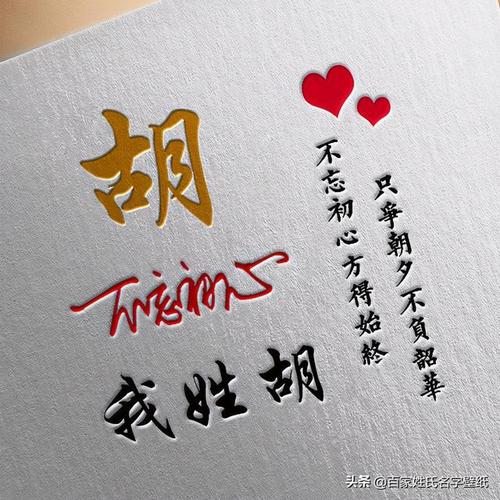 胡
不忘初心
我姓胡
只爭朝夕不負韶華
不忘初心方得始終
头条@百家姓氏名字壁纸